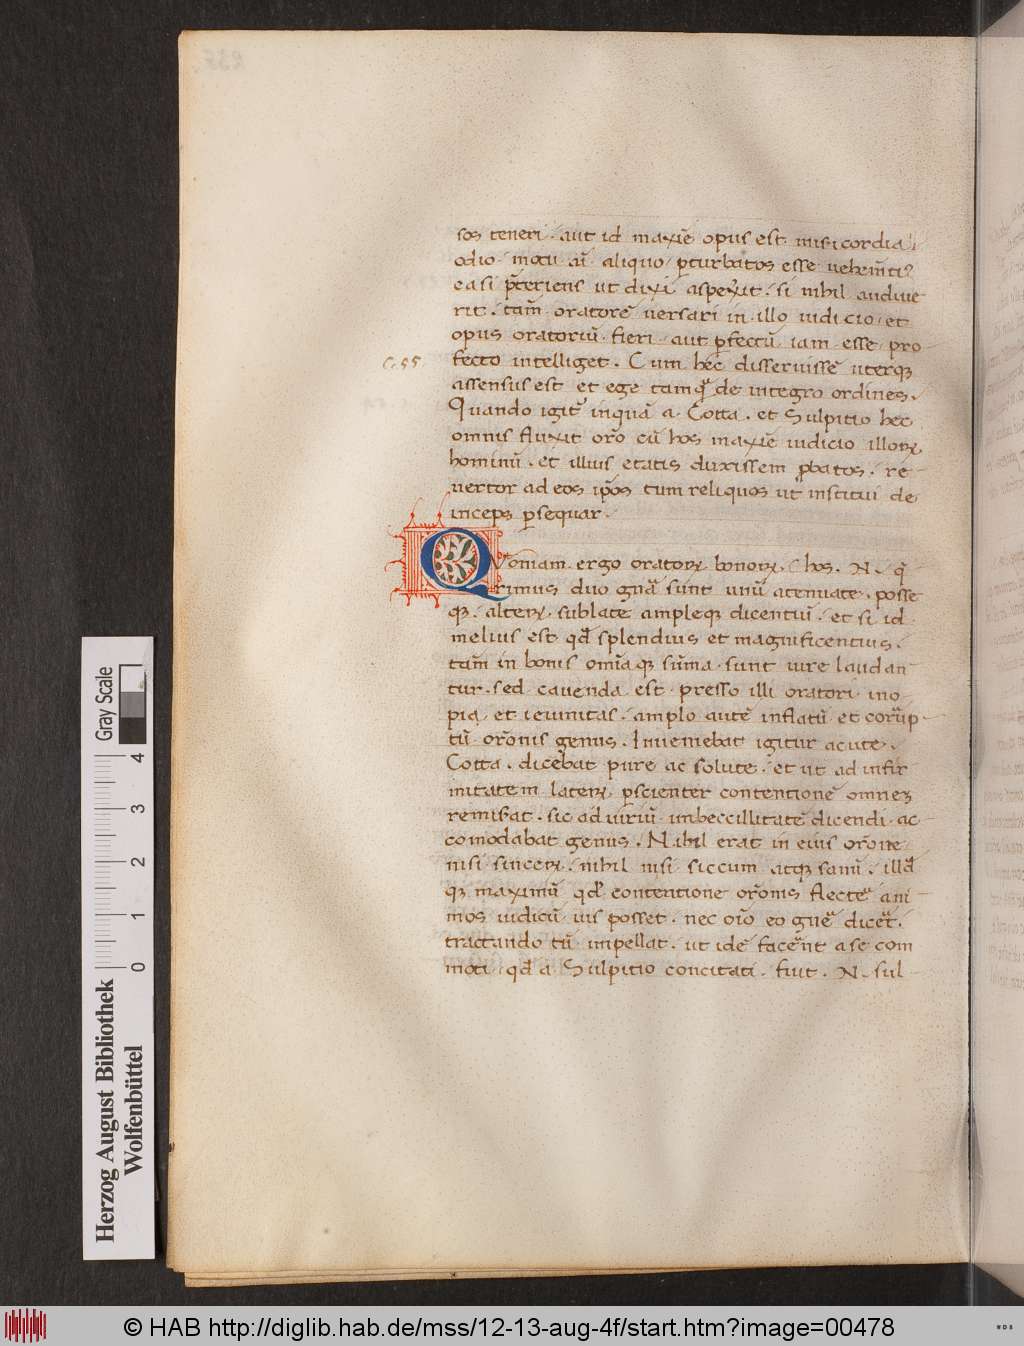 sos teneri. aut id maxiē opus est misericordia
odio motu aī aliquo pturbatos esse uehem̄ti
ea si p̄teriens ut dixi aspexit. si nihil audiue
rit. tam̄ oratorē uersari in illo iudicio et
opus oratoriū fieri aut pfectū iam esse pro
C. 55.
fecto intelliget. Cum hec disseruissē uterqꝫ
assensus est et ego tamq̄ de integro ordines.
Quando igit̄ inquā a Cotta. et Sulpitio hec
omnis fluxit orō cū hos maxiē iudicio illoꝝ
hominū. et illius etatis duxissem ꝓbatos. re
uertor ad eos ip̄os tum reliquos ut institui de
inceps ꝑsequar.
Quoniam ergo oratoꝝ bonoꝝ hos. N. q̄
rimus duo gn̄a sunt unū atenuate. posse
qꝫ. alteꝝ. sublate ampleqꝫ dicentuī. et si id
melius est qd̄ splendius et magnificentius.
tam̄ in bonis omīa qꝫ sūma sunt iure laudan
tur. sed cauenda est presso illi oratori ino
pia et ieiunitas. amplo autē inflatū et corrup
tū orōnis genus. Inueniebat igitur acute.
Cotta. dicebat pure ac solute. et ut ad infir
mitatem lateꝝ ꝑscienter contentionē omneꝫ
remisat. sic ad uiriū imbeccillitatē dicendi ac
comodabat genus. Nihil erat in eius orōne
nisi sinceꝝ. nihil nisi siccum atqꝫ sanū. illd̄
qꝫ maximū qd̄ contentione orōnis flectē ani
mos iudicū uis posset. nec oīo eo gn̄e dicēt.
tractando tū impellat. ut idē facēnt a se com
moti qd̄ a Sulpitio concitati. fuit. N. sul
Gray Scale
0 1 2 3 4
Herzog August Bibliothek
Wolfenbüttel
© HAB http://diglib.hab.de/mss/12-13-aug-4f/start.htm?image=00478